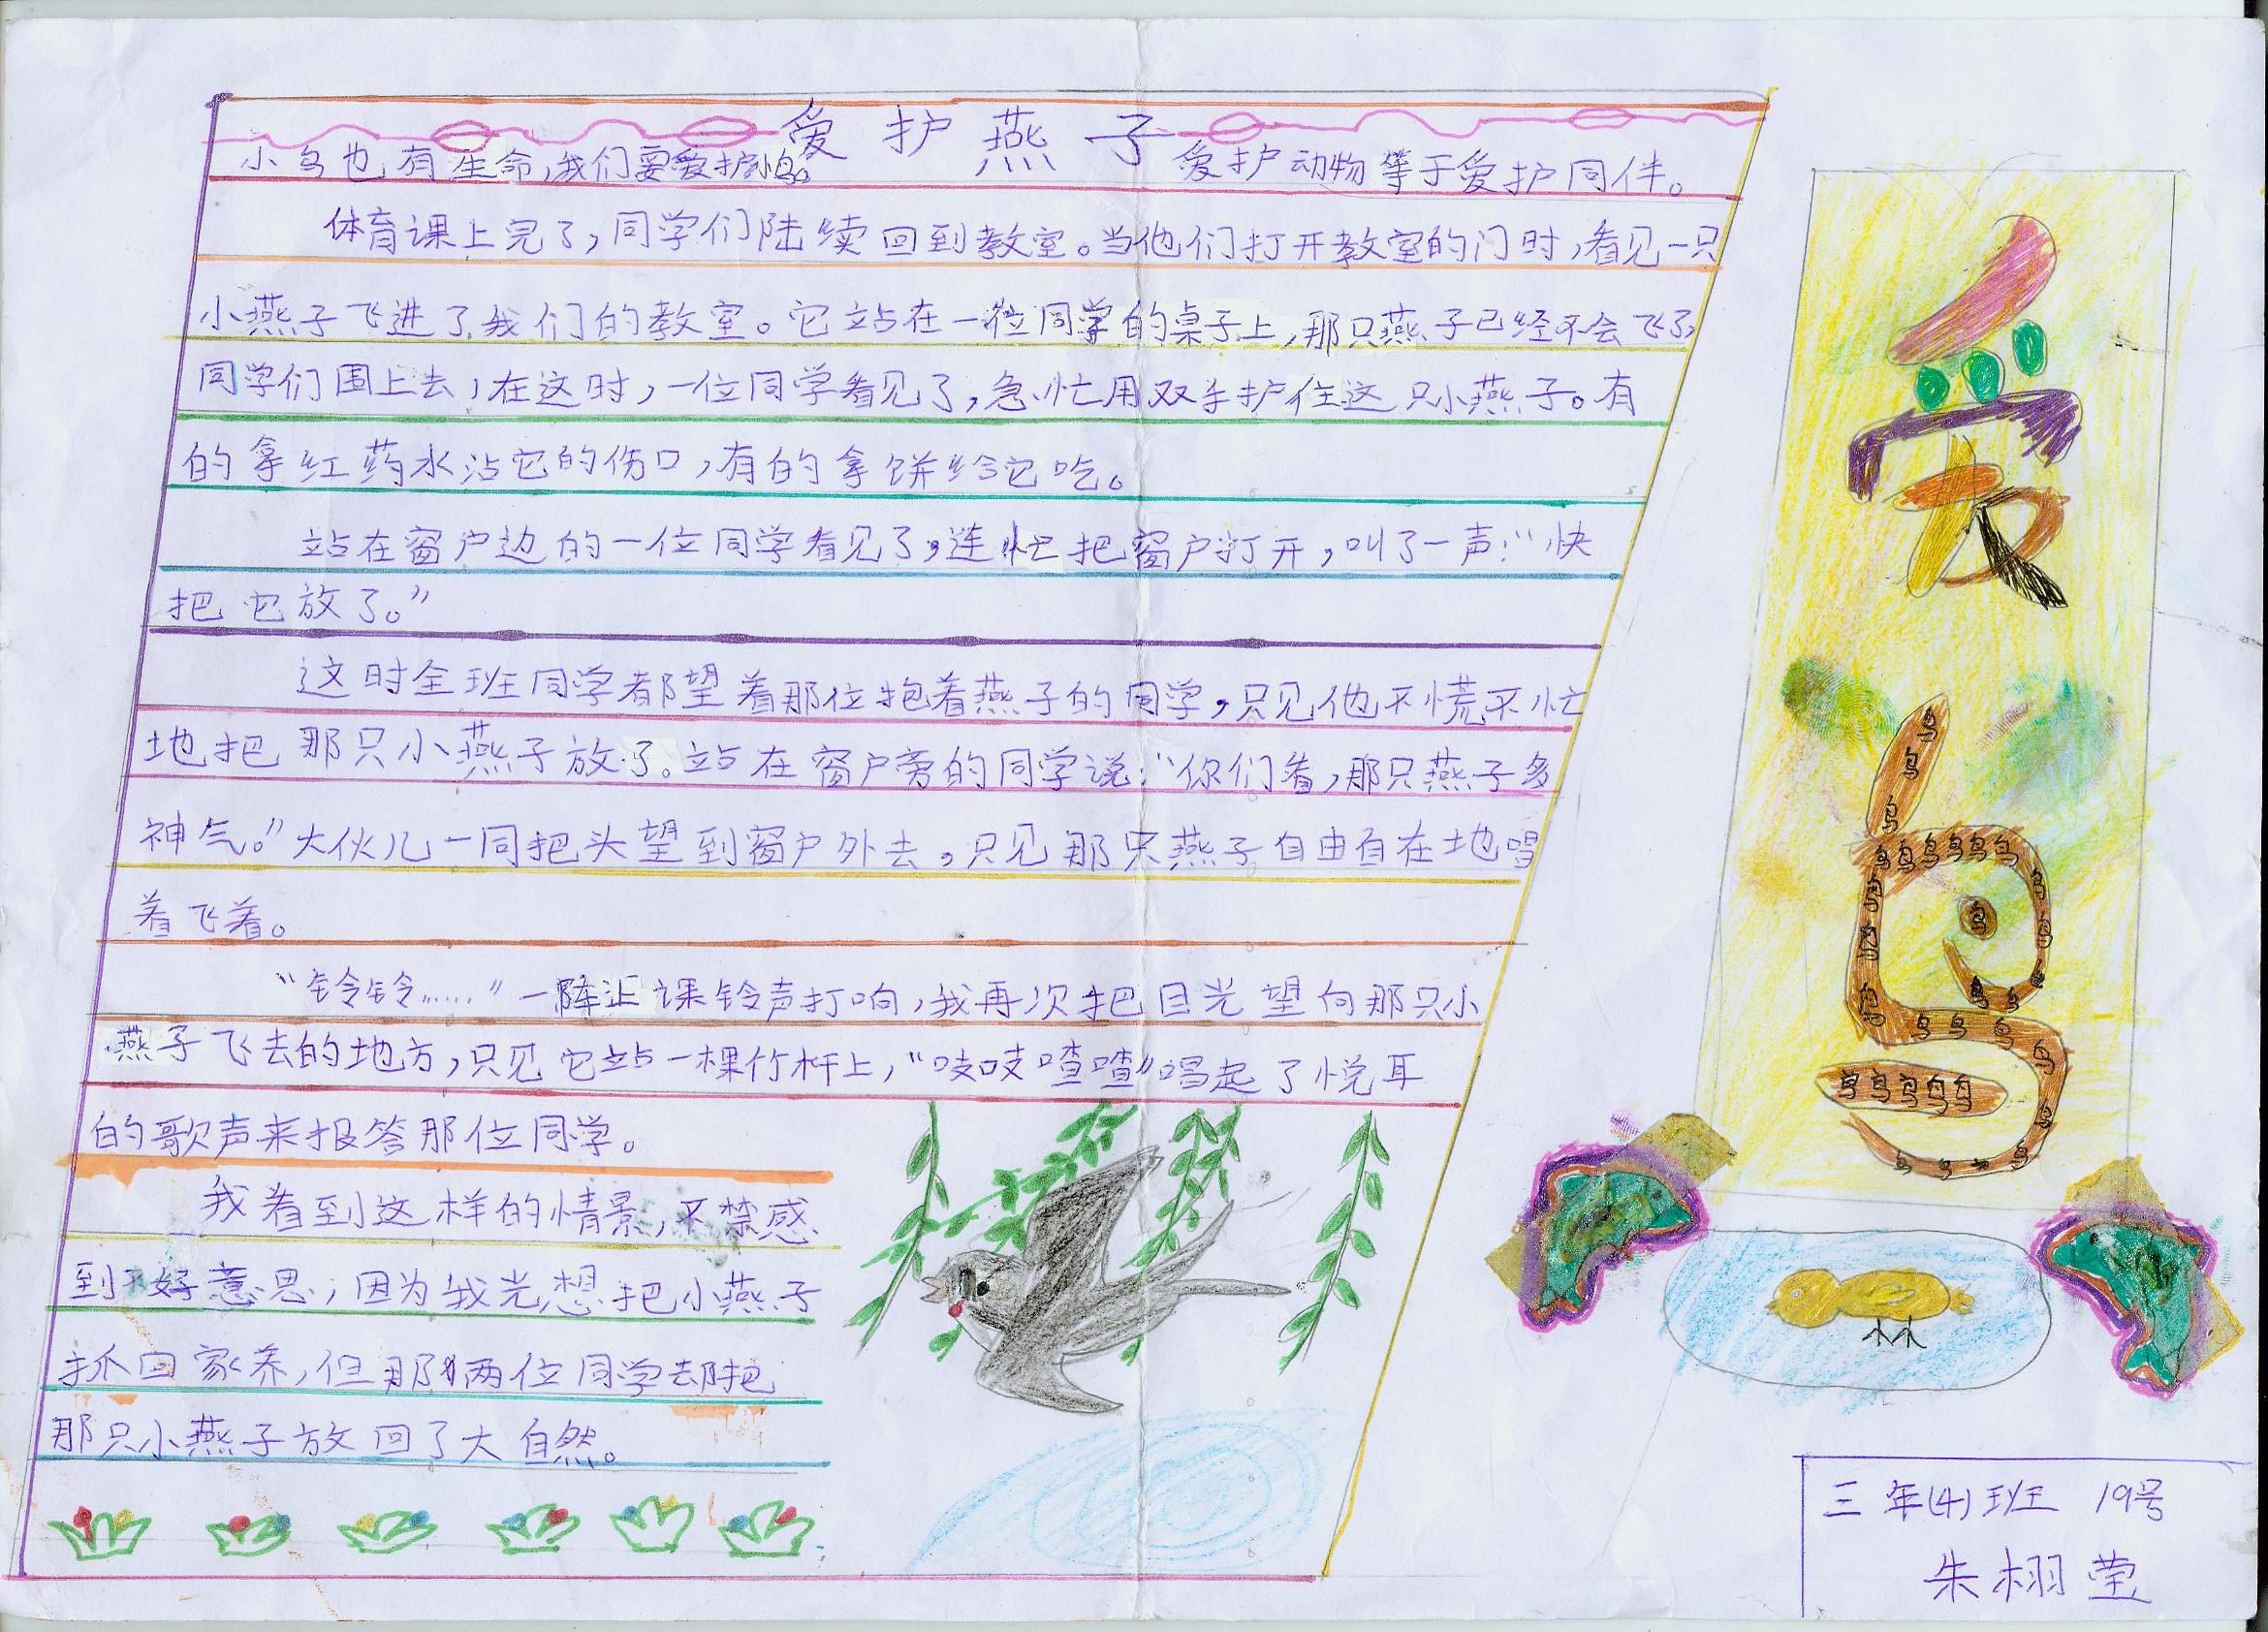 爱护燕子
小鸟也有生命,我们要爱护小鸟。
爱护动物等于爱护同伴。
体育课上完了,同学们陆续回到教室。当他们打开教室的门时,看见一只
小燕子飞进了我们的教室。它站在一位同学的桌子上,那只燕子已经不会飞了,
同学们围上去,在这时,一位同学看见了,急忙用双手护住这只小燕子。有
的拿红药水沾它的伤口,有的拿饼给它吃。
站在窗户边的一位同学看见了,连忙把窗户打开,叫了一声:“快
把它放了。”
这时全班同学都望着那位抱着燕子的同学,只见他不慌不忙
地把那只小燕子放了。站在窗户旁的同学说:“你们看,那只燕子多
神气。”大伙儿一同把头望到窗户外去,只见那只燕子自由自在地唱
着飞着。
“铃铃……”一阵上课铃声打响,我再次把目光望向那只小
燕子飞去的地方,只见它站一棵竹杆上,“吱吱喳喳”唱起了悦耳
的歌声来报答那位同学。
我看到这样的情景,不禁感
到不好意思;因为我光想把小燕子
抓回家养,但那两位同学却把
那只小燕子放回了大自然。
爱鸟
三年(4)班 19号
朱栩莹